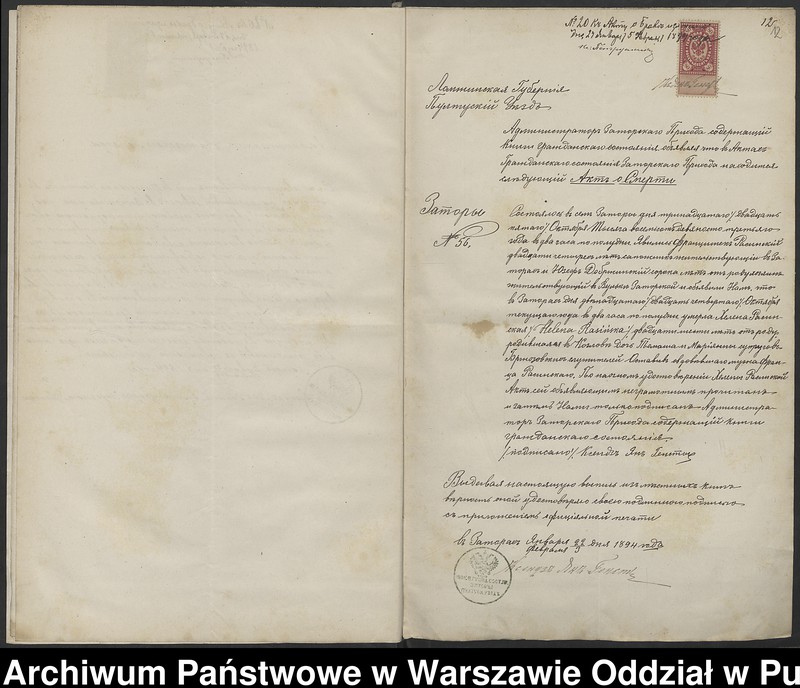 № 20 къ Акту о бракѣ
12
12
Ломжинская Губернія
Пултускій Уѣздъ
Администраторъ Заторскаго Прихода содержащій
книги гражданскаго состоянія объявляетъ что въ Актахъ
Гражданскаго состоянія Заторскаго Прихода находится
слѣдующій Актъ о Смерти
Заторы
№ 56.
Состоялось въ селѣ Заторахъ дня тринадцатаго / двадцать
пятаго / Октября тысяча восемьсотъ девяносто третьяго
года въ два часа по полудни. Явились Францишекъ Расинскій
двадцати четырехъ лѣтъ жительствующій въ За-
торахъ и Юзефъ сорока лѣтъ отъ роду
жительствующій въ Заторской и объявили Намъ, что
въ Заторахъ дня двѣнадцатаго / двадцать четвертаго / Октября
текущаго года въ два часа по полудни умерла Хелена Расин-
ская / Helena Rasińska / двадцати шести лѣтъ отъ роду
родившаяся въ дочь Томаша и Маріанны супруговъ
Оставивъ овдовѣвшаго мужа Фран-
ца Расинскаго. По наочномъ удостовѣреніи Хелены Расинской
Актъ сей объявляющимъ неграмотнымъ прочитанъ
и затѣмъ Нами только подписанъ. Администра-
торъ Заторскаго Прихода содержащій книги
гражданскаго состоянія.
/подписано/ Ксендзъ Янъ
Выдавая настоящую выпись изъ мѣстныхъ книгъ
вѣрность оной удостовѣряю своею подписью
съ приложеніемъ офиціальной печати
въ Заторахъ Января 22 дня 1894 года
Февраля 3
Ксендзъ Янъ
Archiwum Państwowe w Warszawie Oddział w Pu